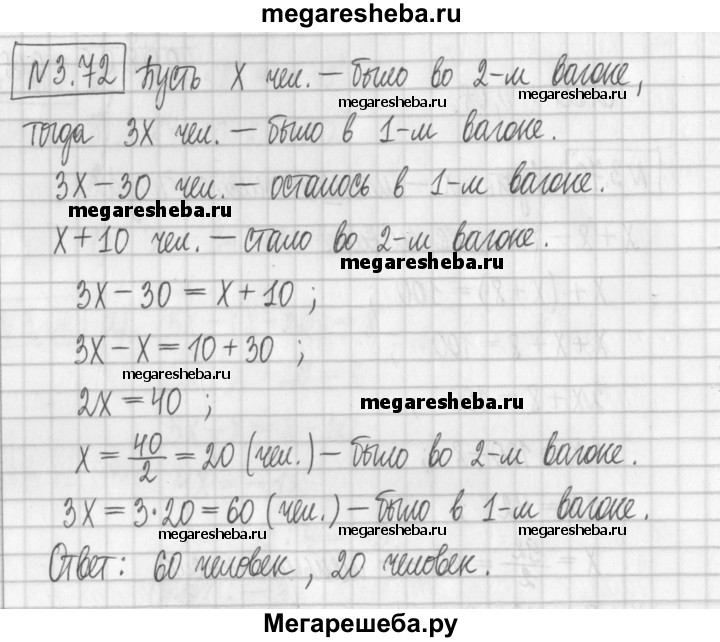 megaresheba.ru
N3.72 Пусть x чел. – было во 2-м вагоне,
megaresheba.ru megaresheba.ru
тогда 3x чел. – было в 1-м вагоне.
3x – 30 чел. – осталось в 1-м вагоне.
megaresheba.ru
x + 10 чел. – стало во 2-м вагоне.
megaresheba.ru
3x – 30 = x + 10 ;
3x – x = 10 + 30 ;
megaresheba.ru
2x = 40 ;
megaresheba.ru
x = 40/2 = 20 (чел.) – было во 2-м вагоне.
3x = 3·20 = 60 (чел.) – было в 1-м вагоне.
megaresheba.ru megaresheba.ru megaresheba.ru
Ответ: 60 человек, 20 человек.
Мегарешеба.ру